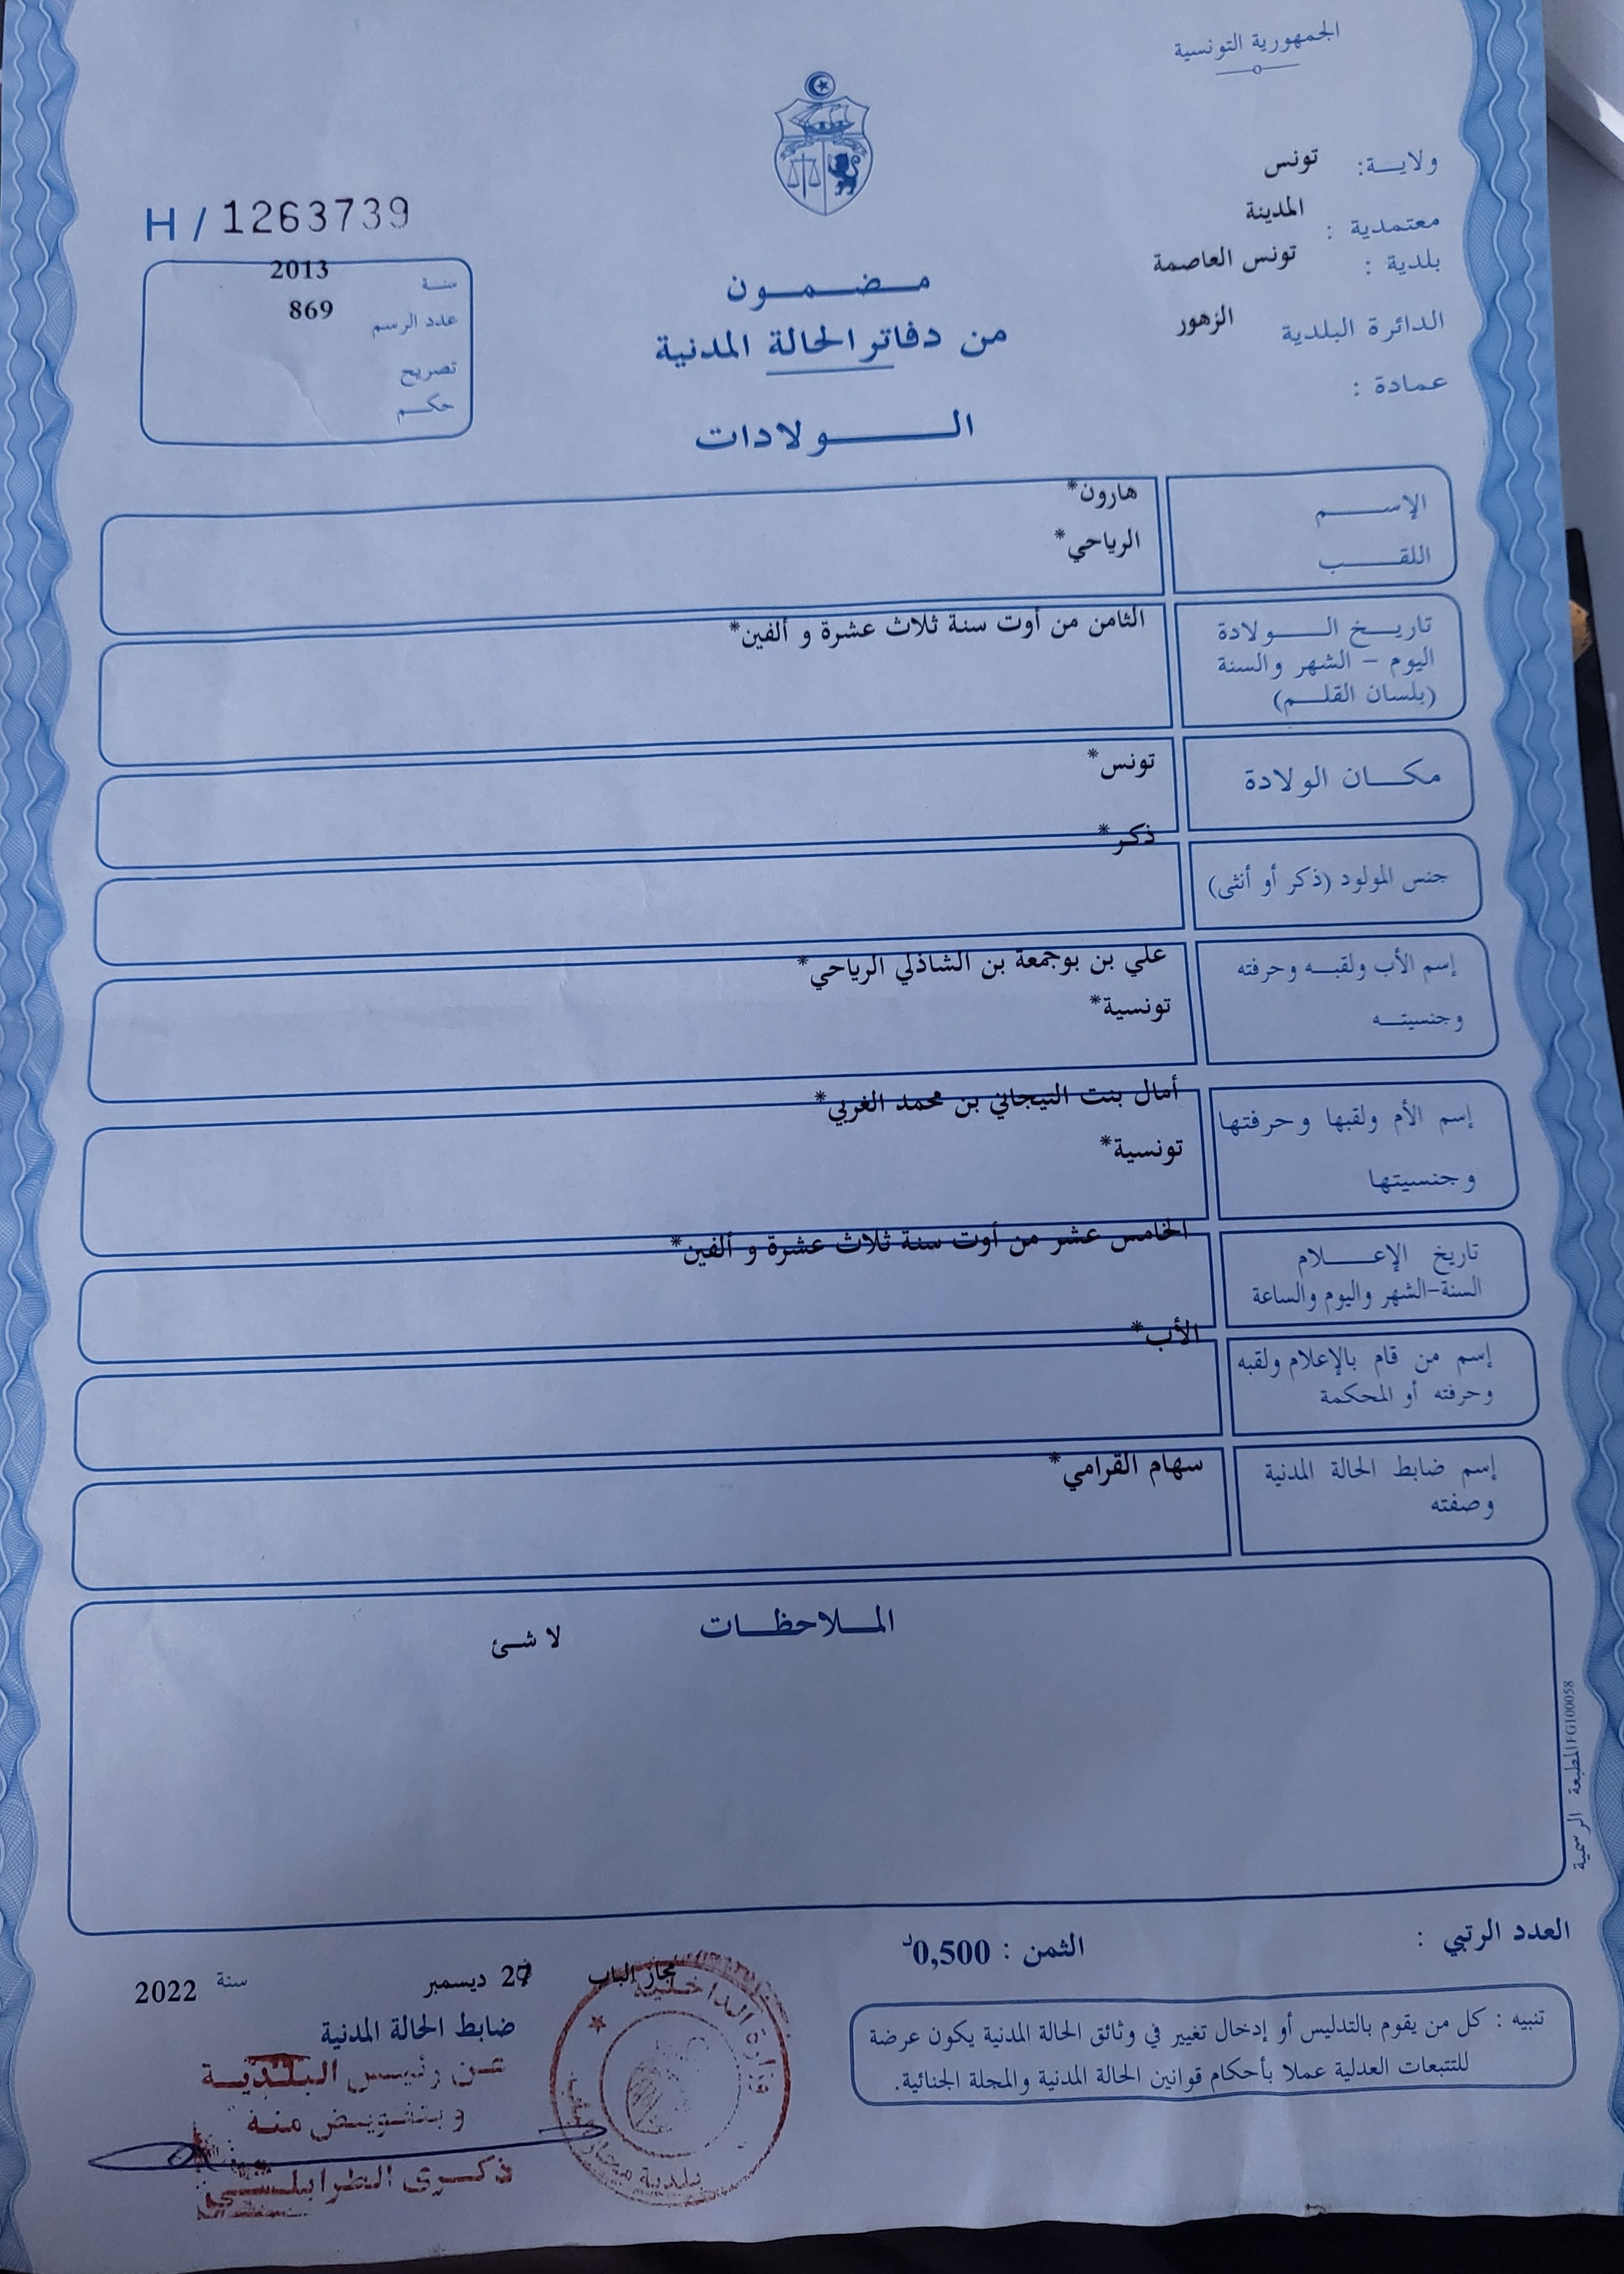 الجمهورية التونسية
ولاية: تونس
معتمدية : المدينة
بلدية : تونس العاصمة
الدائرة البلدية الزهور
عمادة :
H / 1263739
سنة 2013
عدد الرسم 869
تصريح
حكم
مضمون
من دفاتر الحالة المدنية
الولادات
الإسم هارون*
اللقب الرياحي*
تاريخ الولادة الثامن من أوت سنة ثلاث عشرة و ألفين*
اليوم - الشهر والسنة
(بلسان القلم)
مكان الولادة تونس*
جنس المولود (ذكر أو أنثى) ذكر*
إسم الأب ولقبه وحرفته علي بن بوجمعة بن الشاذلي الرياحي*
وجنسيته تونسية*
إسم الأم ولقبها وحرفتها أمال بنت التيجاني بن محمد الغربي*
وجنسيتها تونسية*
تاريخ الإعلام الخامس عشر من أوت سنة ثلاث عشرة و ألفين*
السنة-الشهر واليوم والساعة
إسم من قام بالإعلام ولقبه الأب*
وحرفته أو المحكمة
إسم ضابط الحالة المدنية سهام القرامي*
وصفته
الملاحظات لا شئ
المطبعة الرسمية FG100058
العدد الرتبي :
الثمن : 0,500د
مجاز الباب 27 ديسمبر سنة 2022
ضابط الحالة المدنية
عن رئيس البلدية
وبتفويض منه
ذكرى الطرابلسي
وزارة الداخلية
بلدية مجاز الباب
تنبيه : كل من يقوم بالتدليس أو إدخال تغيير في وثائق الحالة المدنية يكون عرضة
للتتبعات العدلية عملا بأحكام قوانين الحالة المدنية والمجلة الجنائية.